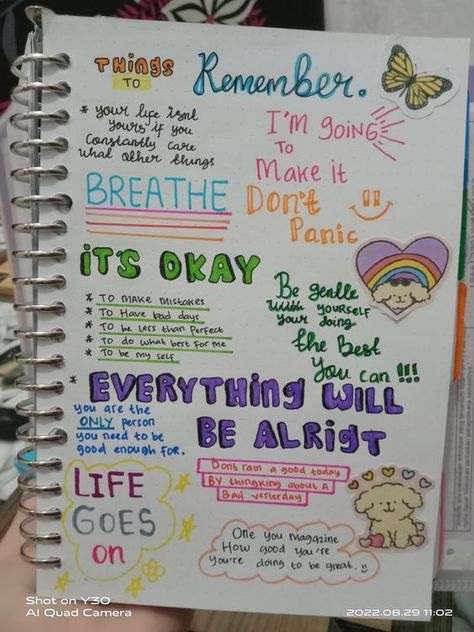 THINGS TO Remember.
* your life isnt
yours if you
Constantly care
what other things
I'M GOING
TO
Make it
BREATHE
Don't
Panic
iT'S OKAY
* TO MAKE MISTAKES
* To Have bad days
* To be less than perfect
* To do what best for me
* To be my self
Be gentle
With yourself
your doing
the Best
You can !!!
* EVERYTHING WILL
BE ALRIGT
you are the
ONLY person
you need to be
good enough for.
Dont rain a good today
By thingking about a
Bad yesterday
LIFE
GOES
on
One you magazine
How good you're
you're doing to be great. !!
Shot on Y30
AI Quad Camera
2022.08.29 11:02